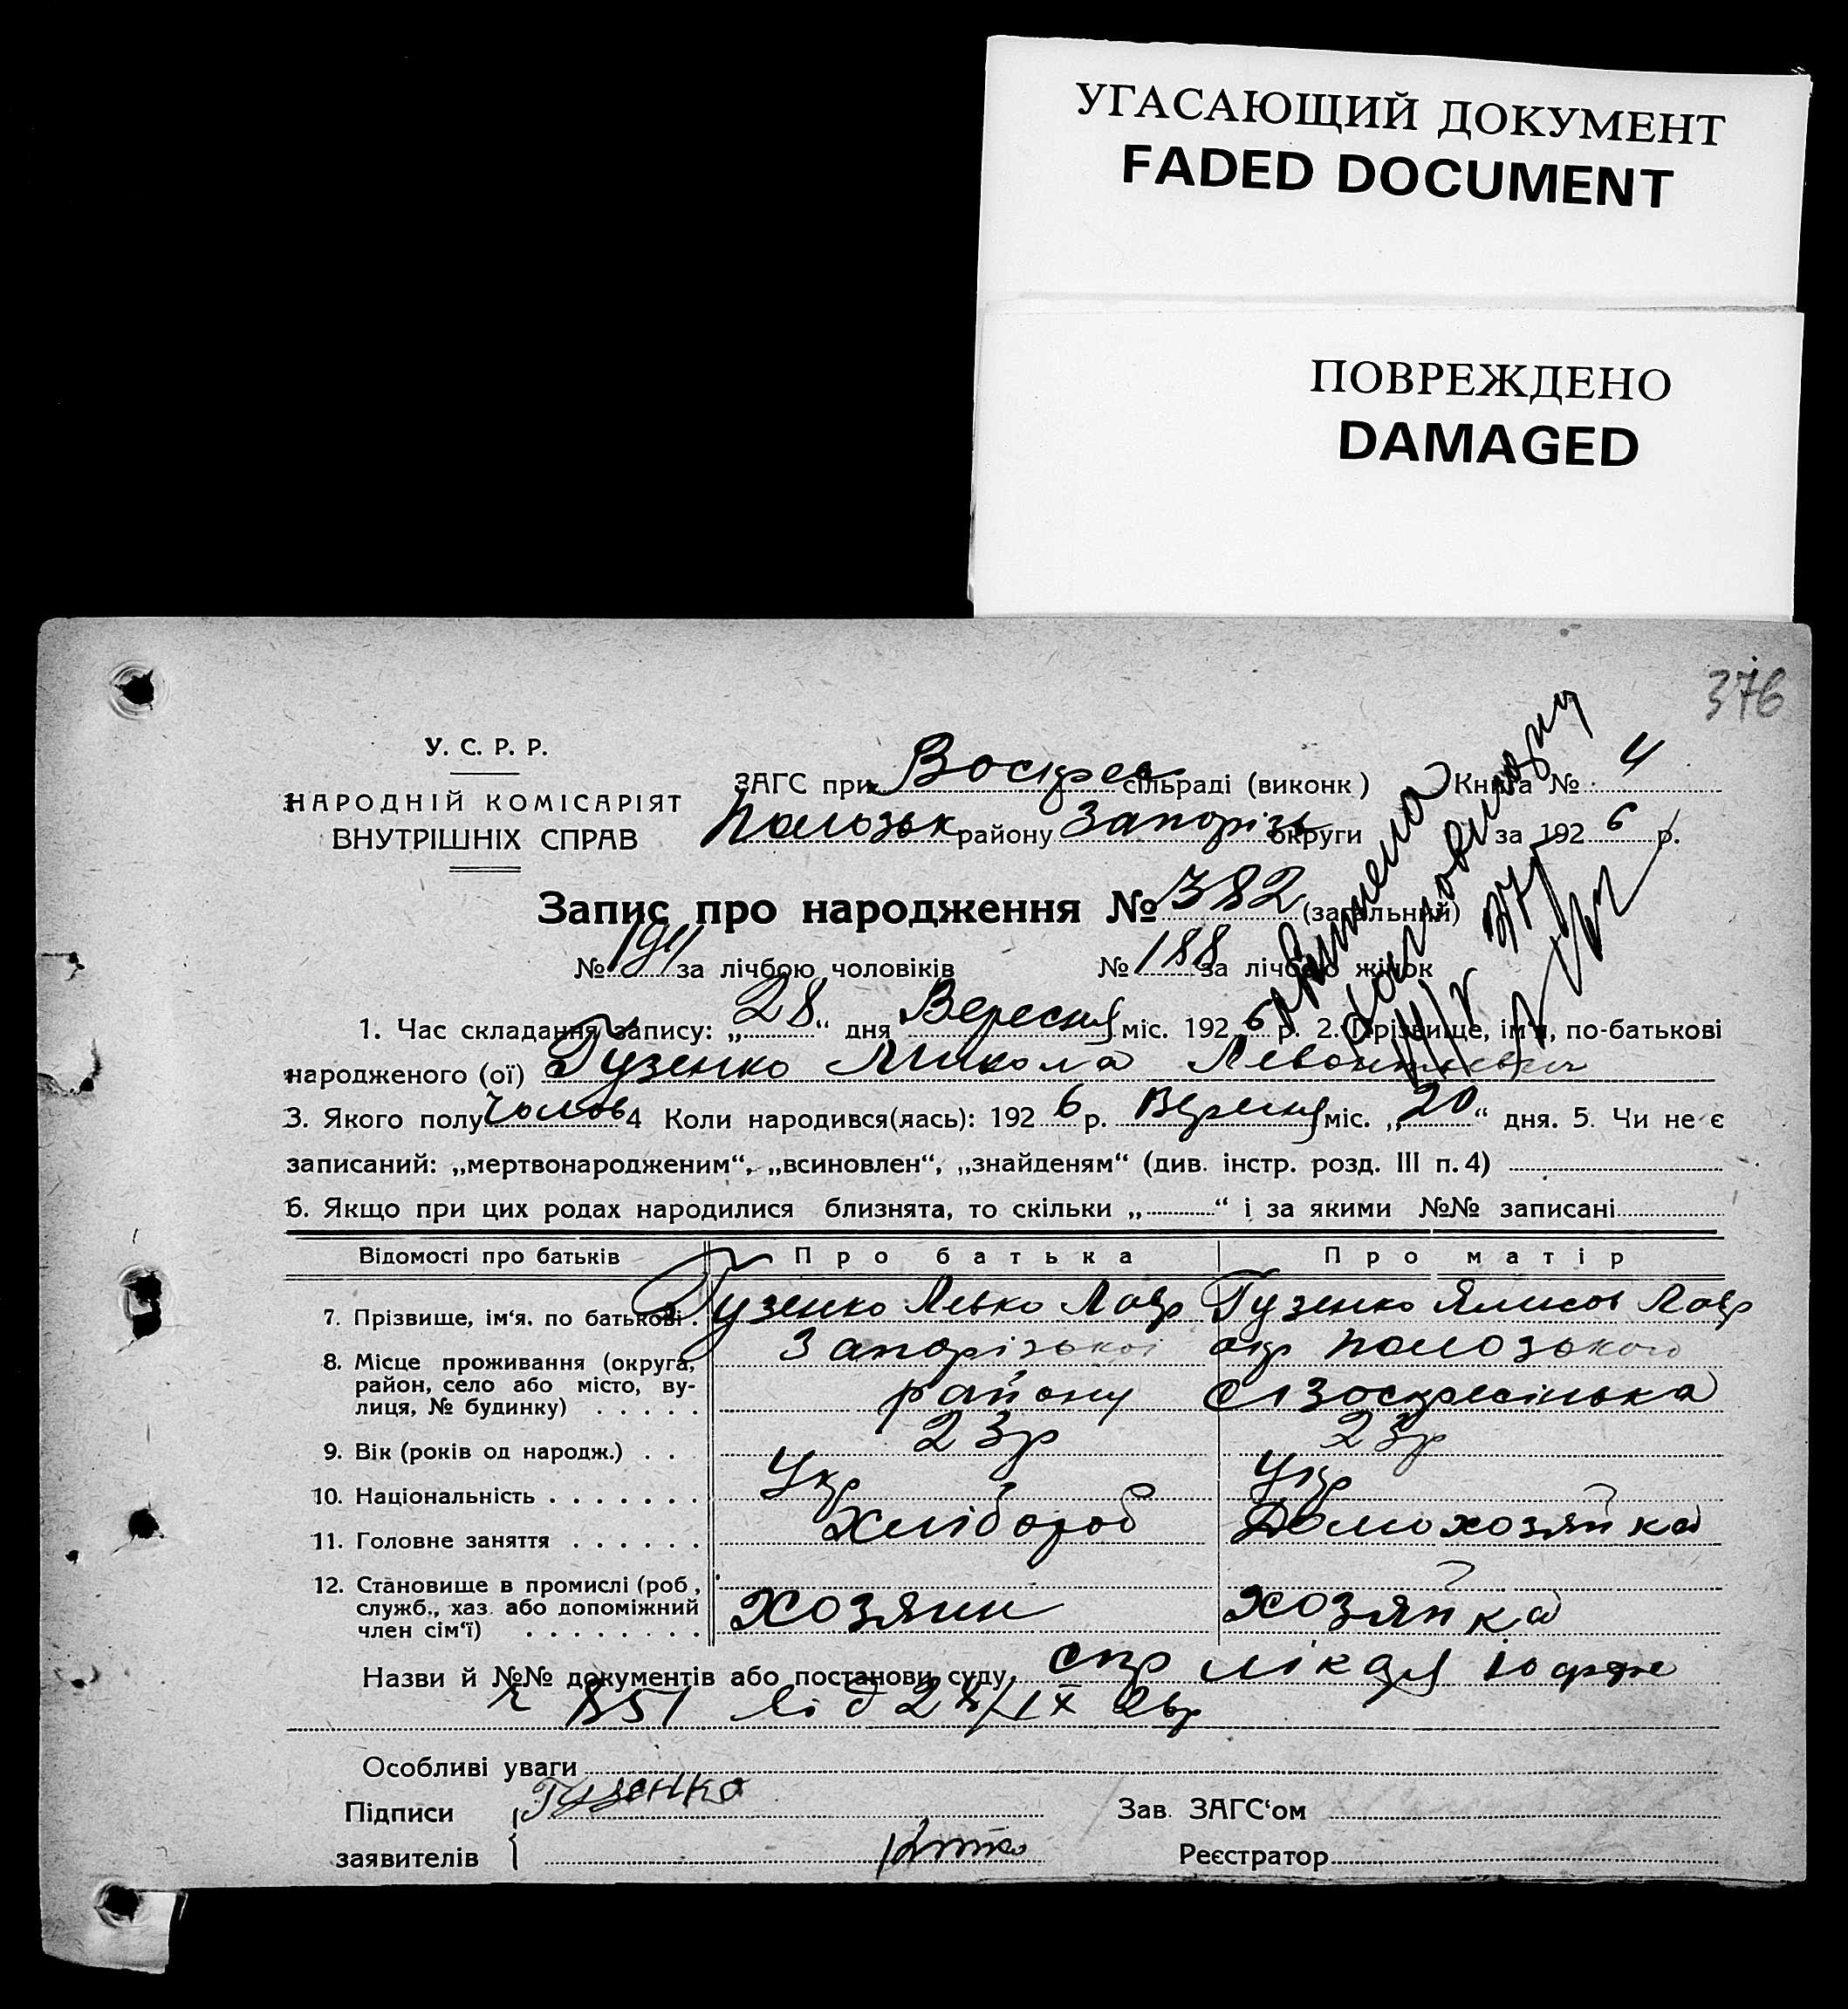 УГАСАЮЩИЙ ДОКУМЕНТ
FADED DOCUMENT
ПОВРЕЖДЕНО
DAMAGED
376
У. С. Р. Р.
НАРОДНІЙ КОМІСАРІЯТ
ВНУТРІШНІХ СПРАВ
ЗАГС при Воскрес сільраді (виконк) Книга № 4
Пологзьк району Запорізь округи за 1926 р.
Запис про народження № 382 (загальний)
№ 194 за лічбою чоловіків № 188 за лічбою жінок
1. Час складання запису: „28“ дня Вересня міс. 1926 р. 2. Прізвище, ім'я, по-батькові
народженого (ої) Гузенко Микола Левонтьевич
3. Якого полу Чолов 4 Коли народився(лась): 1926 р. Вересня міс. „20“ дня. 5. Чи не є
записаний: „мертвонародженим“, „всиновлен“, „знайденям“ (див. інстр. розд. III п. 4)
6. Якщо при цих родах народилися близнята, то скільки „ “ і за якими №№ записані
Відомості про батьків Про батька Про матір
7. Прізвище, ім'я, по батькові. Гузенко Левко Лавр Гузенко Ялисов Лавр
8. Місце проживання (округа, район, село або місто, вулиця, № будинку) Запорізької окр Полозького
району с Воскресінька
9. Вік (років од народж.) 23р 23р
10. Національність Укр Укр
11. Головне заняття Хлібороб Домохозяйка
12. Становище в промислі (роб, служб., хаз. або допоміжний член сім'ї) Хозяин хозяйка
Назви й №№ документів або постанови суду спр лікаря
851 від 28/IX 26р
Особливі уваги
Підписи Гузенко Зав. ЗАГС'ом
заявителів Реєстратор